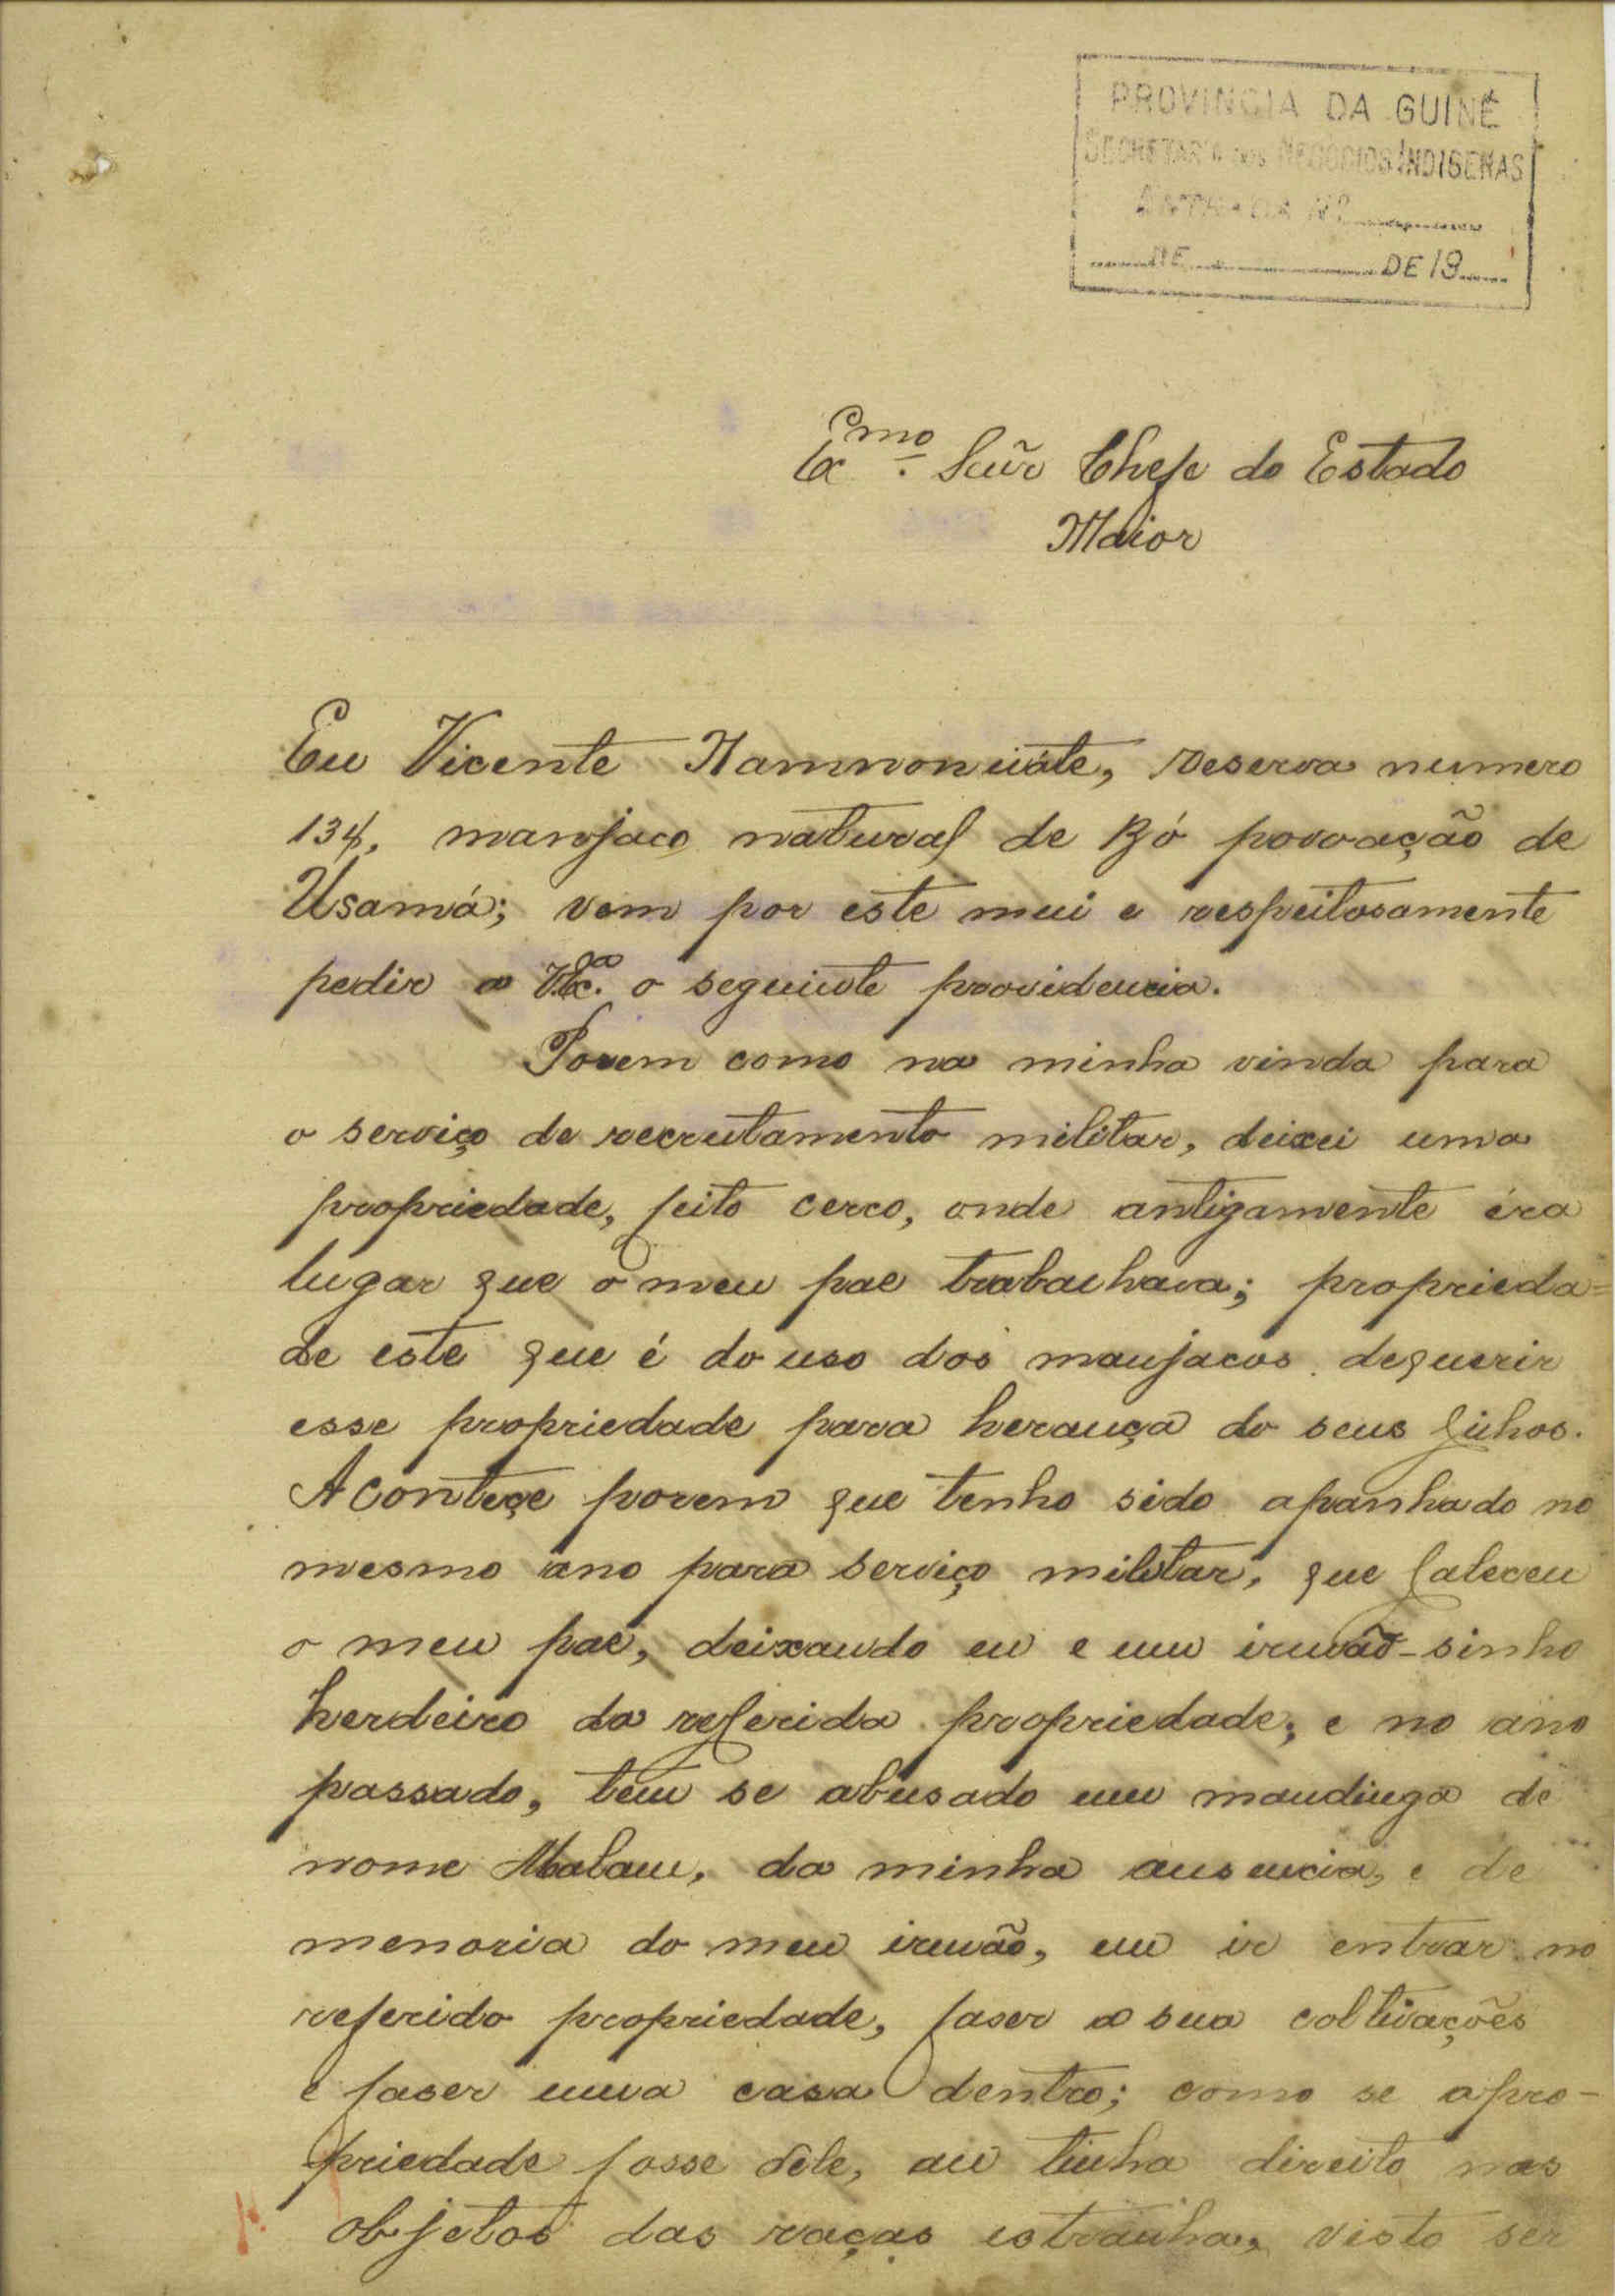 PROVINCIA DA GUINÉ
SECRETARIA DOS NEGOCIOS INDIGENAS
ENTRADA Nº
DE DE 19
Exmo. Snr. Chefe do Estado
Maior
Eu Vicente Namnoniáte, reserva numero
134, manjaco natural de Bó povoação de
Usamá; vem por este mui e respeitosamente
pedir a V.Exca. o seguinte providencia.
Porem como na minha vinda para
o serviço de recrutamento militar, deixei uma
propriedade, feito cerco, onde antigamente éra
lugar que o meu pae trabalhava; proprieda=
de este que é do uso dos manjacos dequerir
esse propriedade para herança do seus filhos.
Aconteçe porem que tenho sido apanhado no
mesmo ano para serviço militar, que faleceu
o meu pae, deixando eu e um irmão-sinho
herdeiro da referida propriedade; e no ano
passado, tem se abusado um mandinga de
nome Malam, da minha ausencia, e de
menoria do meu irmão, em ir entrar no
referido propriedade, faser a sua coltivações
e faser uma casa dentro; como se apro-
priedade fosse dele, au tinha direito nas
objetos das raças estranha, visto ser